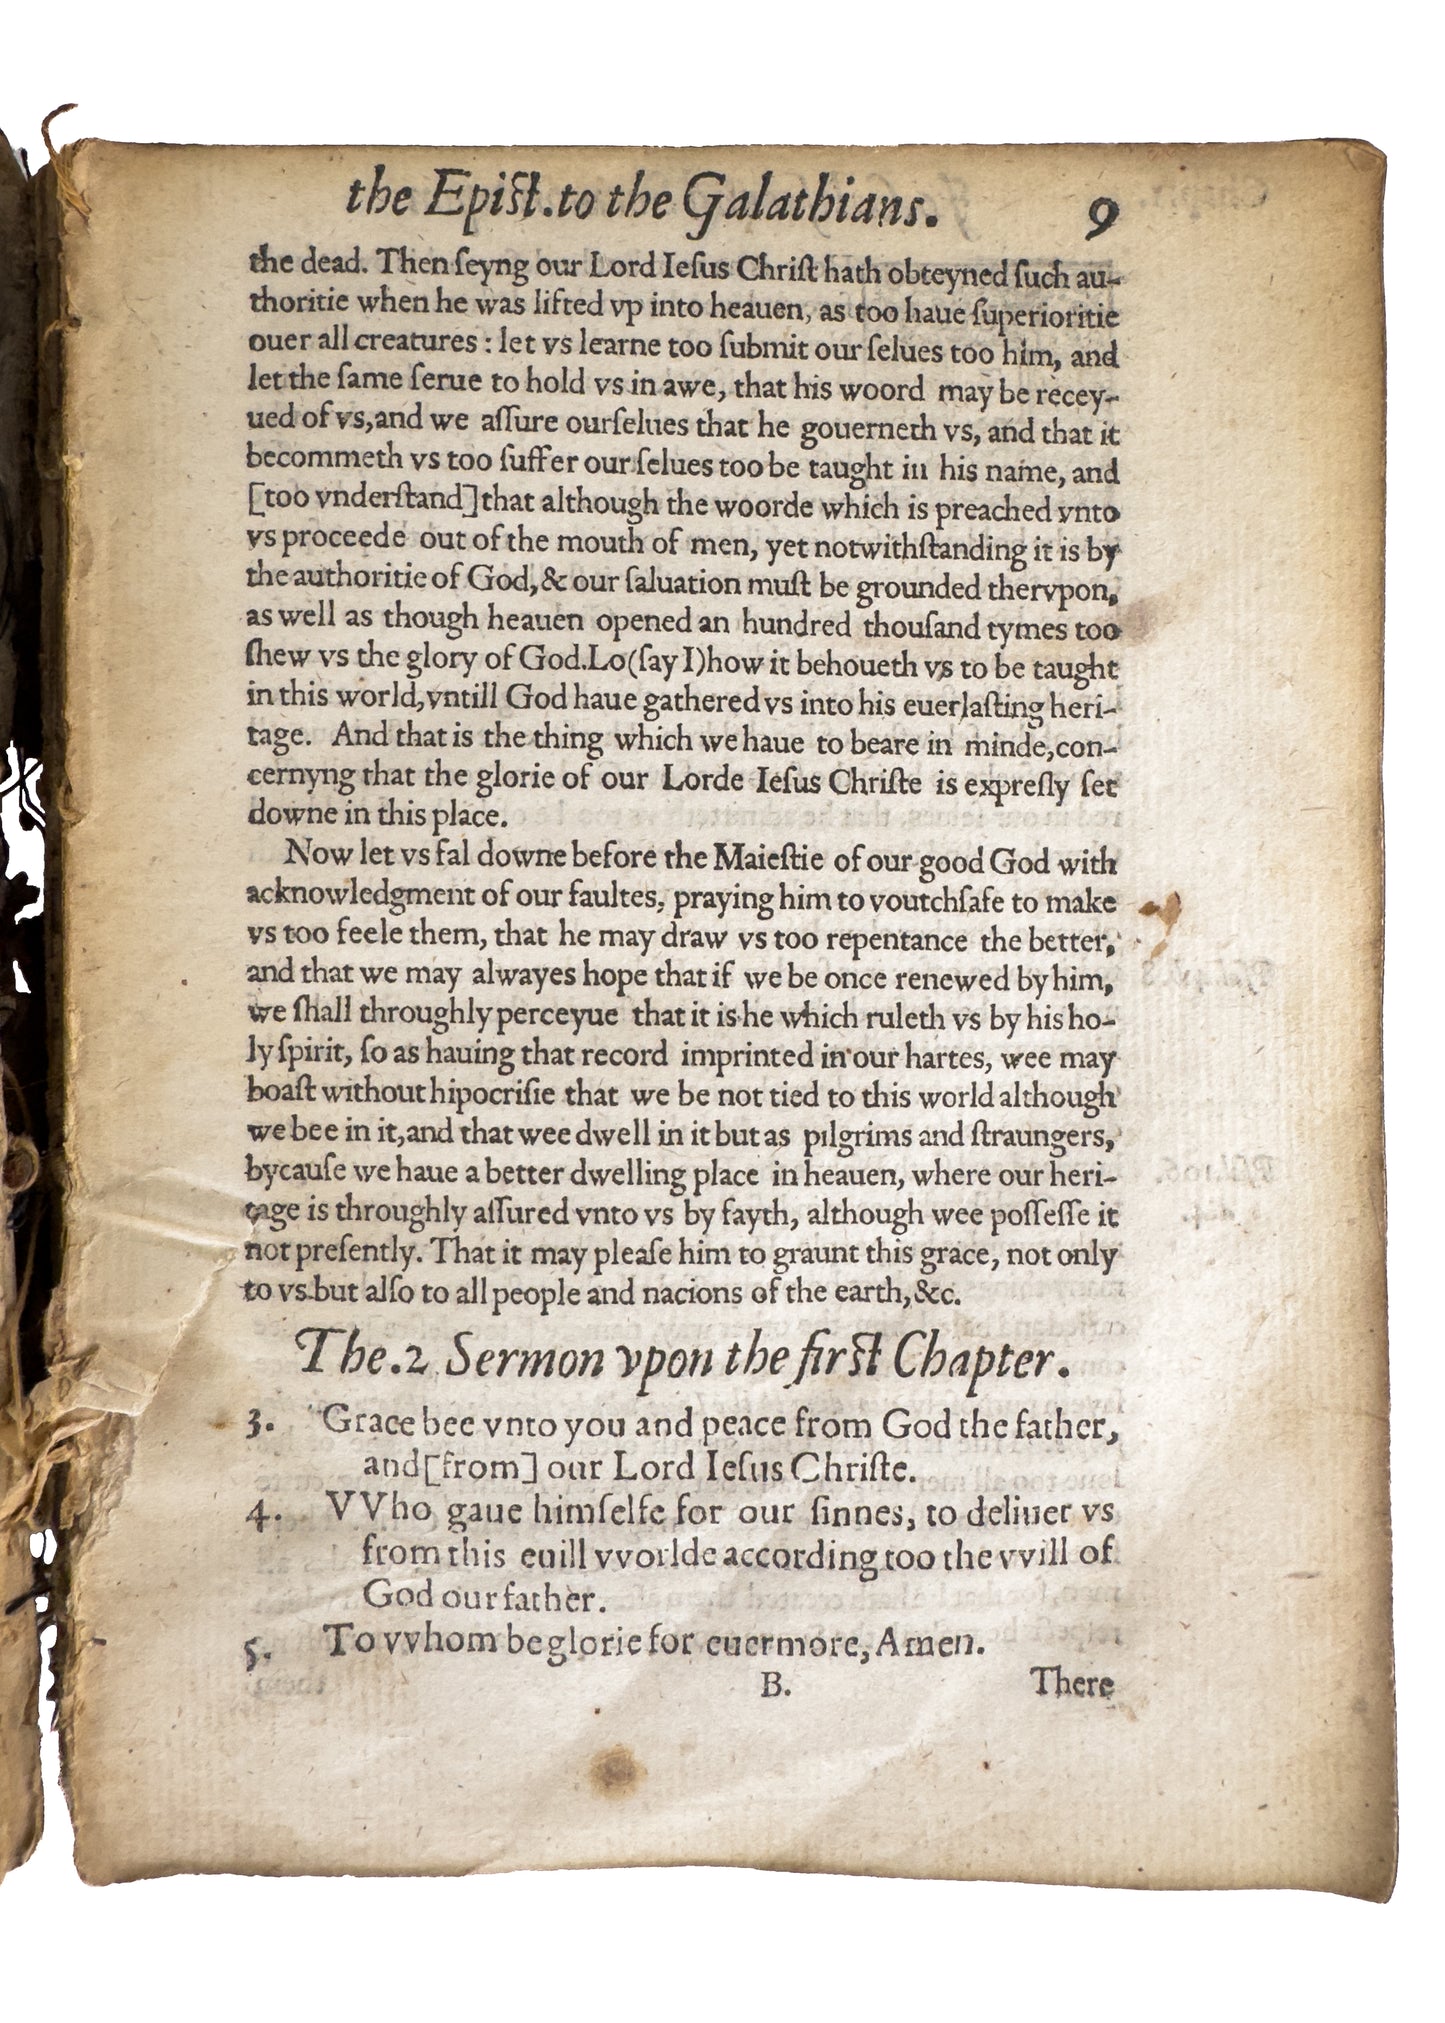 the Epiſt. to the Galathians. 9
the dead. Then ſeyng our Lord Ieſus Chriſt hath obteyned ſuch au-
thoritie when he was lifted vp into heauen, as too haue ſuperioritie
ouer all creatures : let vs learne too ſubmit our ſelues too him, and
let the ſame ſerue to hold vs in awe, that his woord may be recey-
ued of vs, and we aſſure ourſelues that he gouerneth vs, and that it
becommeth vs too ſuffer our ſelues too be taught in his name, and
[too vnderſtand] that although the woorde which is preached vnto
vs proceede out of the mouth of men, yet notwithſtanding it is by
the authoritie of God, & our ſaluation muſt be grounded thervpon,
as well as though heauen opened an hundred thouſand tymes too
ſhew vs the glory of God. Lo (ſay I) how it behoueth vs to be taught
in this world, vntill God haue gathered vs into his euerlaſting heri-
tage. And that is the thing which we haue to beare in minde, con-
cernyng that the glorie of our Lorde Ieſus Chriſte is expreſly ſet
downe in this place.
Now let vs fal downe before the Maieſtie of our good God with
acknowledgment of our faultes, praying him to voutchſafe to make
vs too feele them, that he may draw vs too repentance the better,
and that we may alwayes hope that if we be once renewed by him,
we ſhall throughly perceyue that it is he which ruleth vs by his ho-
ly ſpirit, ſo as hauing that record imprinted in our hartes, wee may
boaſt without hipocriſie that we be not tied to this world although
we bee in it, and that wee dwell in it but as pilgrims and ſtraungers,
bycauſe we haue a better dwelling place in heauen, where our heri-
tage is throughly aſſured vnto vs by fayth, although wee poſſeſſe it
not preſently. That it may pleaſe him to graunt this grace, not only
to vs but alſo to all people and nacions of the earth, &c.
The. 2 Sermon vpon the firſt Chapter.
3. Grace bee vnto you and peace from God the father,
and [from] our Lord Ieſus Chriſte.
4. VVho gaue himſelfe for our ſinnes, to deliuer vs
from this euill vvorlde according too the vvill of
God our father.
5. To vvhom be glorie for euermore, Amen.
B. There